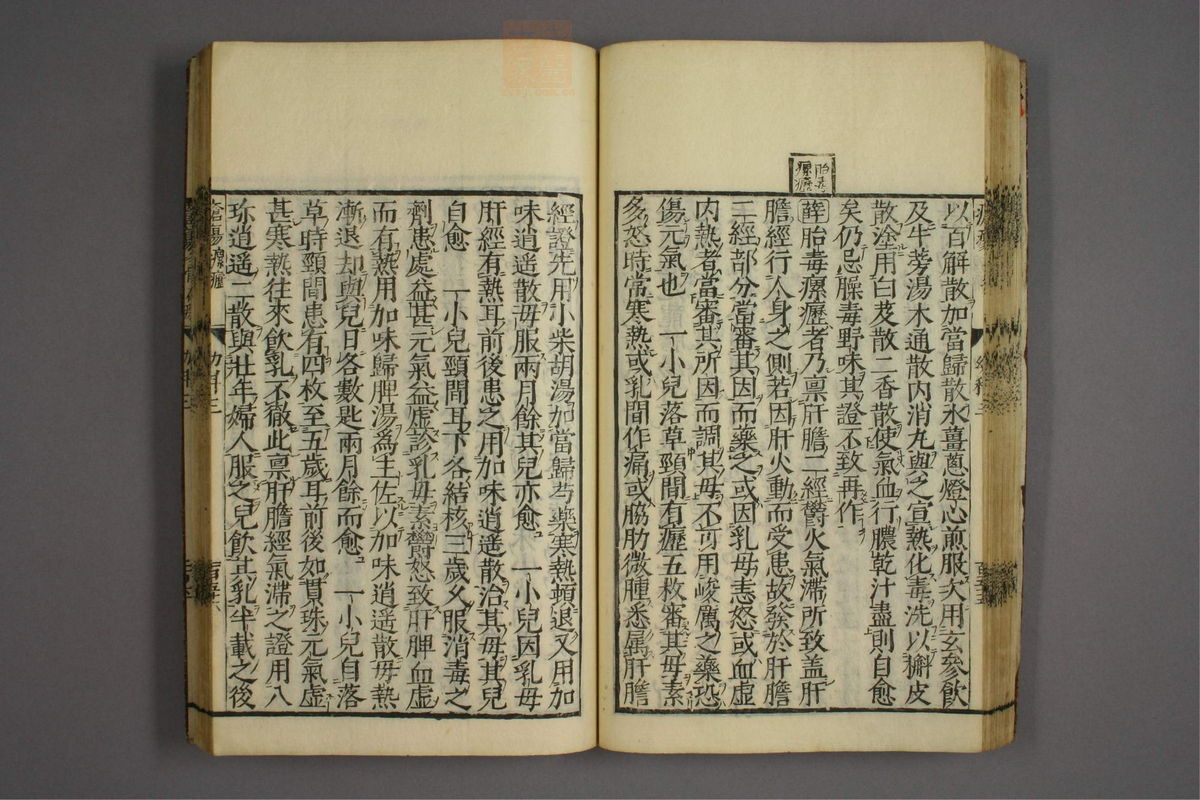 胎毒
瘰癧
以百解散加當歸散水薑蔥燈心煎服次用玄參飲
及牛蒡湯木通散內消丸與之宣熱化毒洗以槲皮
散塗用白芨散二香散使氣血行膿乾汁盡則自愈
矣仍忌臊毒野味其證不致再作
薛胎毒瘰癧者乃稟肝膽二經鬱火氣滯所致盖肝
膽經行人身之側若因肝火動而受患故發於肝膽
二經部分當審其因而藥之或因乳母恚怒或血虛
內熱者當審其所因而調其母不可用峻厲之藥恐
傷元氣也 一小兒落草頸間有癧五枚審其母素
多怒時常寒熱或乳間作痛或脇肋微腫悉属肝膽
經證先用小柴胡湯加當歸芍藥寒熱頓退又用加
味逍遥散母服兩月餘其兒亦愈 一小兒因乳母
肝經有熱耳前後患之用加味逍遥散治其母其兒
自愈 一小兒頸間耳下各結核三歲久服消毒之
劑患處益甚元氣益虛診乳母素鬱怒致肝脾血虛
而有熱用加味歸脾湯為主佐以加味逍遥散母熱
漸退却與兒日各數匙兩月餘而愈 一小兒自落
草時頸間患有四枚至五歲耳前後如貫珠元氣虛
甚寒熱往來飲乳不徹此稟肝膽經氣滯之證用八
珎逍遥二散與壯年婦人服之兒飲其乳半載之後